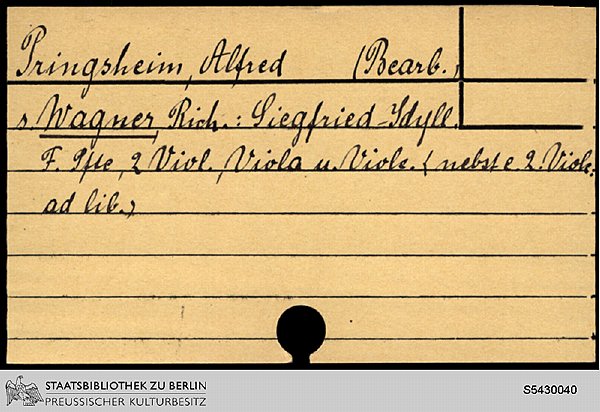 Pringsheim, Alfred (Bearb.)
s Wagner, Rich.: Siegfried-Idyll.
F. Pfte, 2 Viol., Viola u. Violc. (nebst e. 2. Violc.
ad lib.)
STAATSBIBLIOTHEK ZU BERLIN
PREUSSISCHER KULTURBESITZ
S5430040